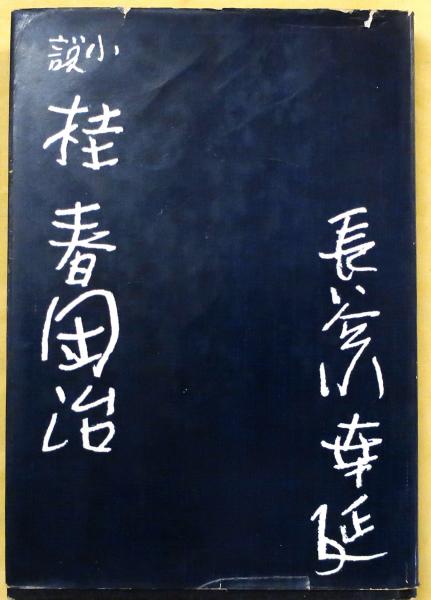 長谷川幸延
小説
桂春団治